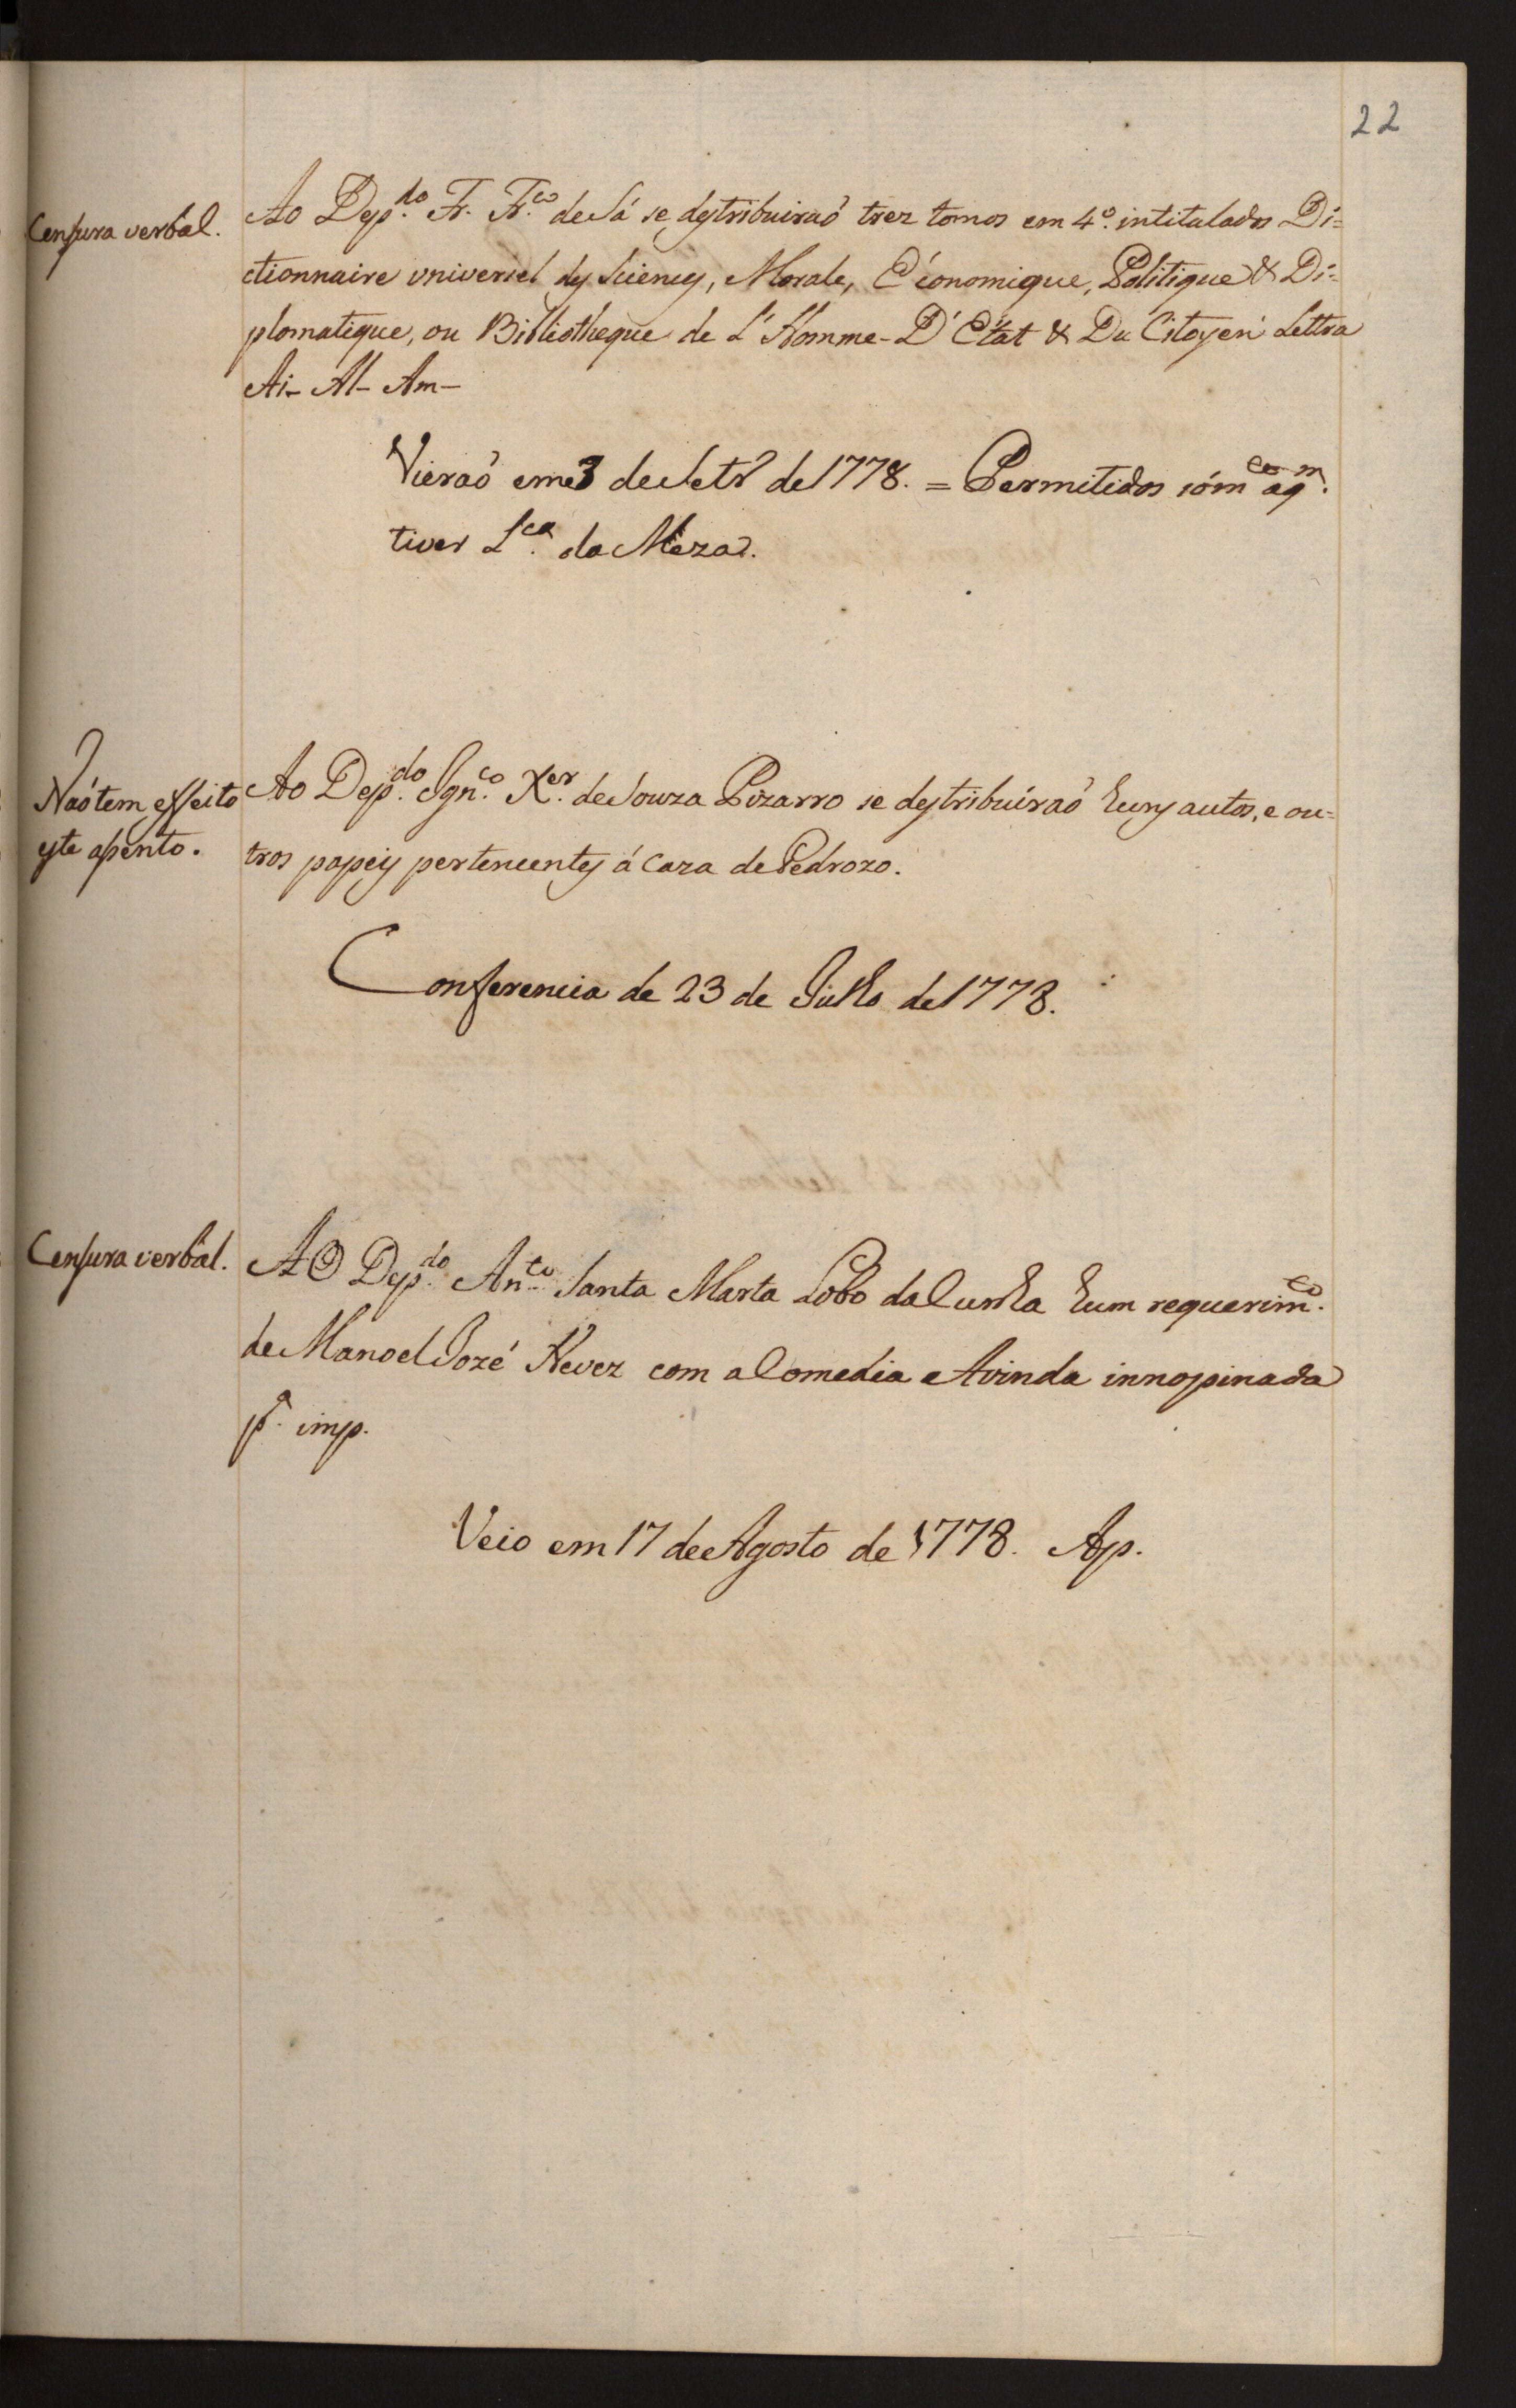 22
Censura verbal.
Ao Dep.do Fr. Fr.co de Sá se destribuiraõ trez tomos em 4.o intitulados Di=
ctionnaire universel des Sciences, Morale, Économique, Politique & Di=
plomatique, ou Bibliotheque de L'Homme-D'État & Du Citoyen Lettra
Ai- Al- Am-
Vieraõ em 3 de Setr.o de 1778. = Permitidos sóm.te a q.m
tiver L.ca da Meza.
Naõ tem effeito
este assento.
Ao Dep.do Ign.co X.er de Souza Pizarro se destribuiraõ huns autos, e ou=
tros papeis pertencentes á Caza de Pedrozo.
Conferencia de 23 de Julho de 1778.
Censura verbal.
Ao Dep.do An.to Santa Marta Lobo da Cunha hum requerim.to
de Manoel Jozé Nevez com a Comedia A vinda innopinada
p.a imp.
Veio em 17 de Agosto de 1778. Ap.